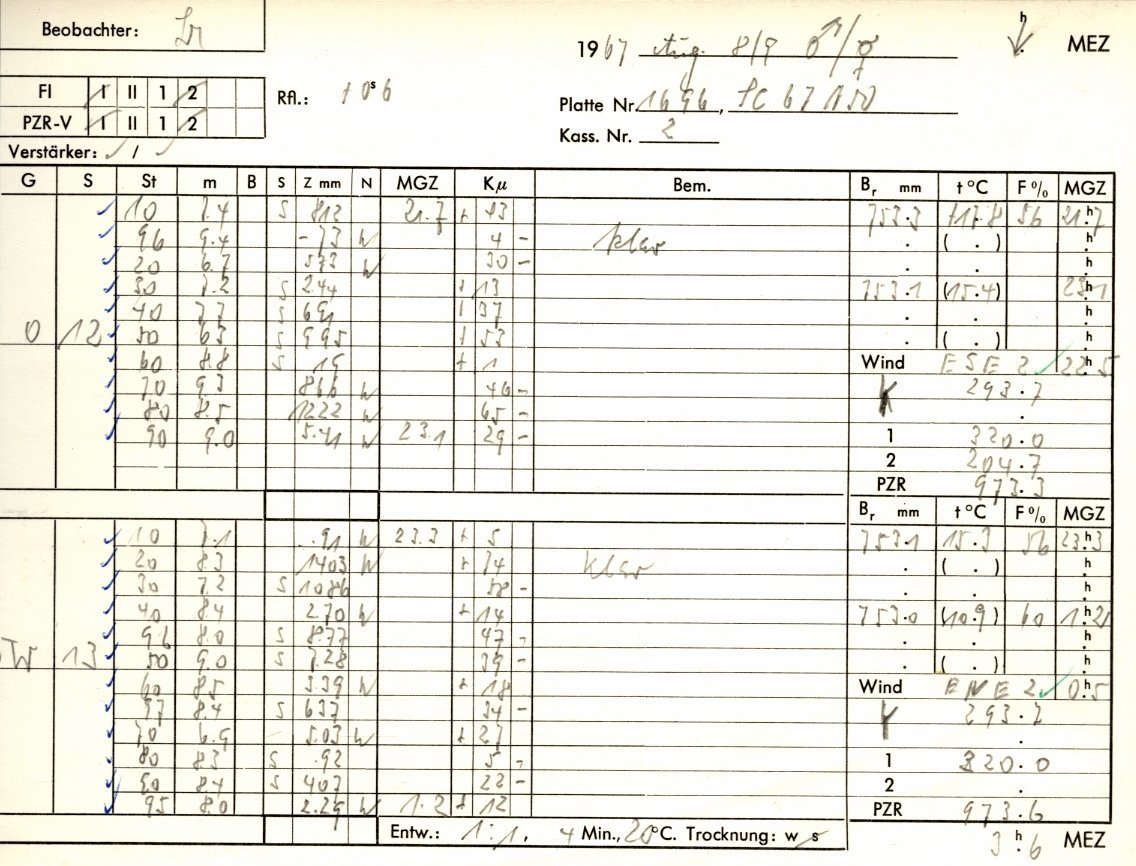 Beobachter:
1967 Aug. 8/9 ♂/☿ h MEZ
FI I II 1 2
PZR-V I II 1 2
Rfl.: + 0ˢ6
Platte Nr. 1696, SC 67 N50
Kass. Nr. 2
Verstärker: ✓ / ✓
G S St m B S Z mm N MGZ Kμ Bem. Br mm t °C F% MGZ
10 7.4 S 812 21.7 + 43 753.3 +17.8 56 21.ʰ7
96 9.4 - 73 W 4 - klar ( . ) h
20 6.7 573 W 30 - h
30 7.2 S 244 + 13 753.1 (15.4) 23.ʰ1
40 7.7 S 691 + 37 h
0 12 50 6.5 S 995 + 53 ( . ) h
60 8.8 S 19 + 1 Wind ESE 2 22.ʰ5
70 9.3 866 W 46 - 293.7
80 8.5 1222 W 65 -
90 9.0 5.41 W 23.1 29 - 1 320.0
2 204.7
PZR 973.3
Br mm t °C F% MGZ
10 7.1 .91 W 23.3 + 5 753.1 15.3 56 23.ʰ3
20 8.3 1403 W + 74 klar ( . ) h
30 7.2 S 1086 58 - h
40 8.4 2.70 W + 14 753.0 (10.9) 60 1.ʰ2
96 8.0 S 8.77 47 - h
W 13 50 9.0 S 7.28 39 - ( . ) h
60 8.5 3.39 W + 18 Wind ENE 2 0.ʰ5
97 8.4 S 637 34 - 293.7
70 6.9 5.03 W + 27
80 8.3 S .92 5 - 1 320.0
90 8.4 S 407 22 - 2
95 8.0 2.29 W 1.2 + 12 PZR 973.6
Entw.: 1:1, 4 Min., 20°C. Trocknung: w s 3.ʰ6 MEZ